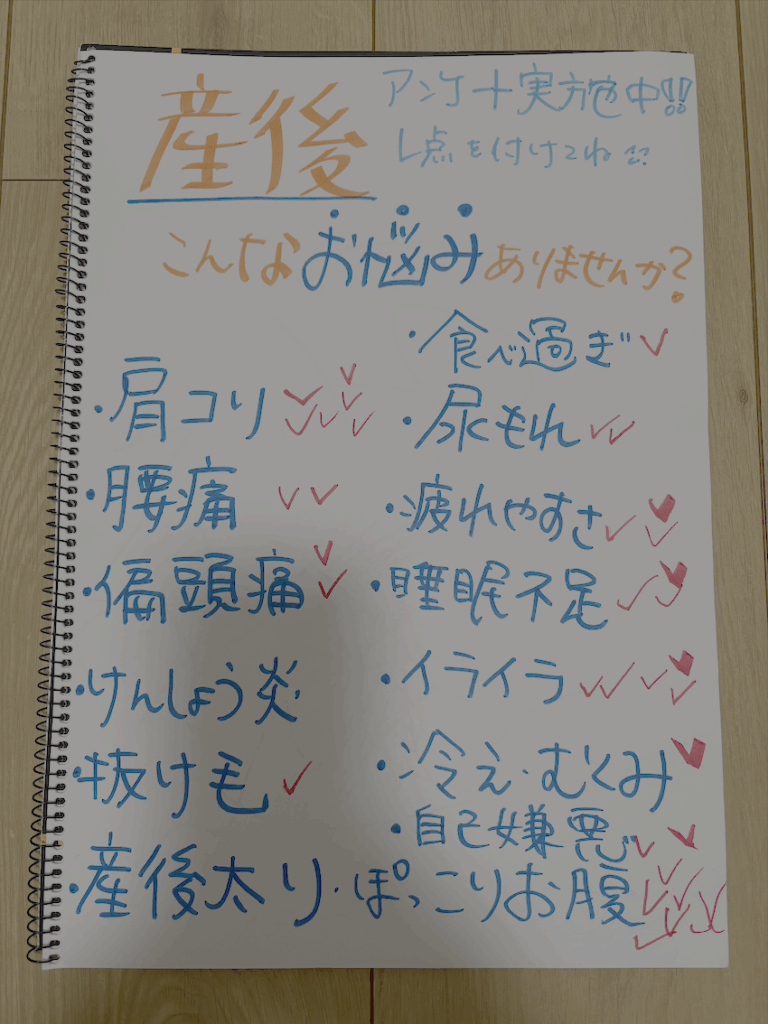 産後
アンケート実施中!!
レ点を付けてね!!
こんなお悩みありませんか?
・肩コリ
・腰痛
・偏頭痛
・けんしょう炎
・抜け毛
・食べ過ぎ
・尿もれ
・疲れやすさ
・睡眠不足
・イライラ
・冷え・むくみ
・自己嫌悪
・産後太り・ぽっこりお腹